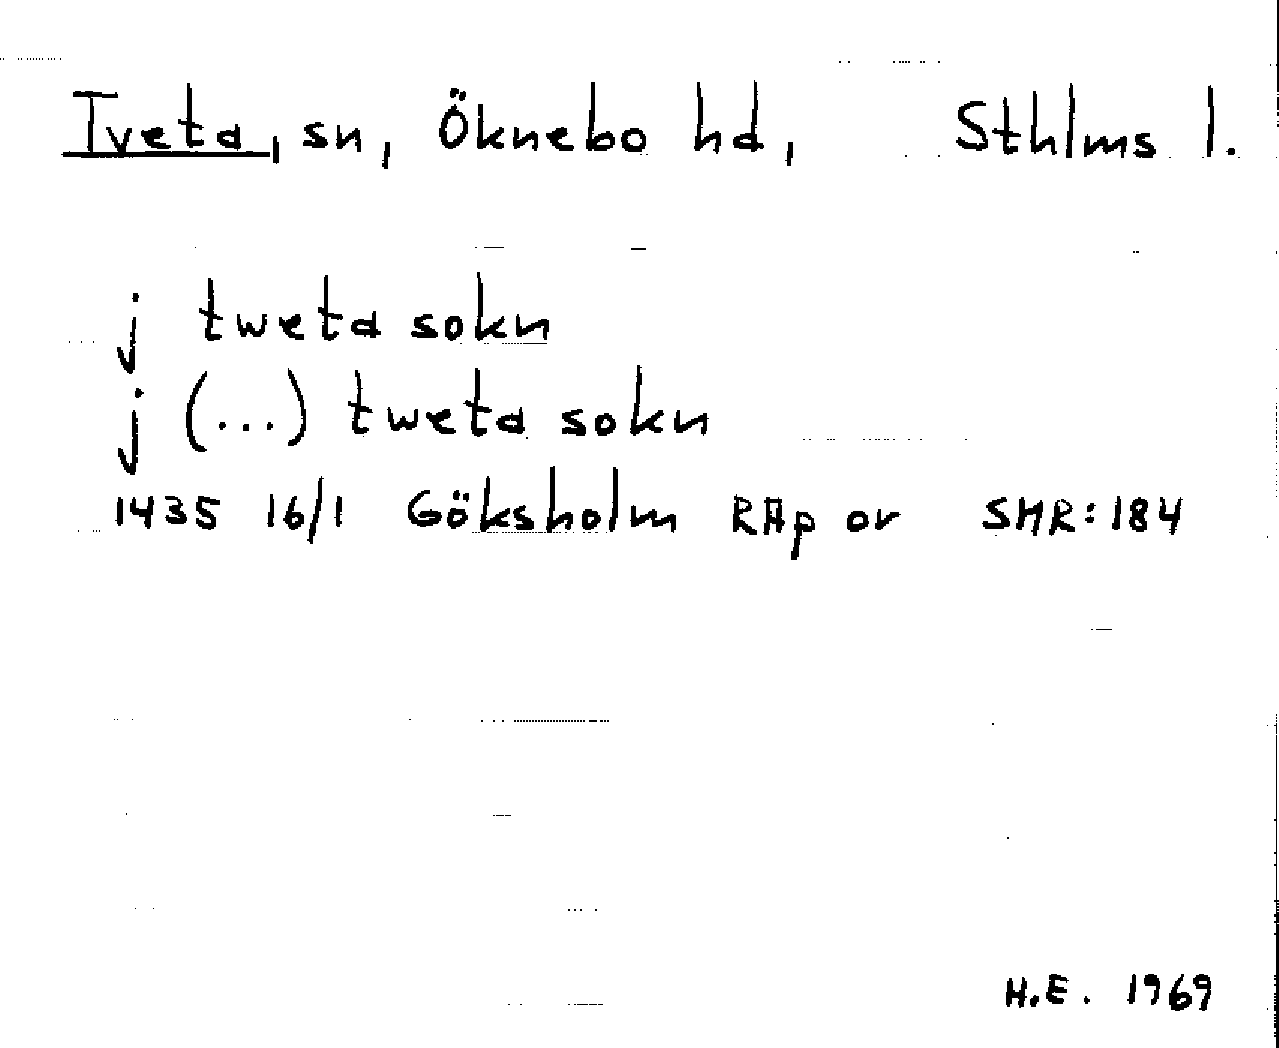 Tveta, sn, Öknebo hd, Sthlms l.
j tweta sokn
j (...) tweta sokn
1435 16/1 Göksholm RAp or SMR:184
H.E. 1969